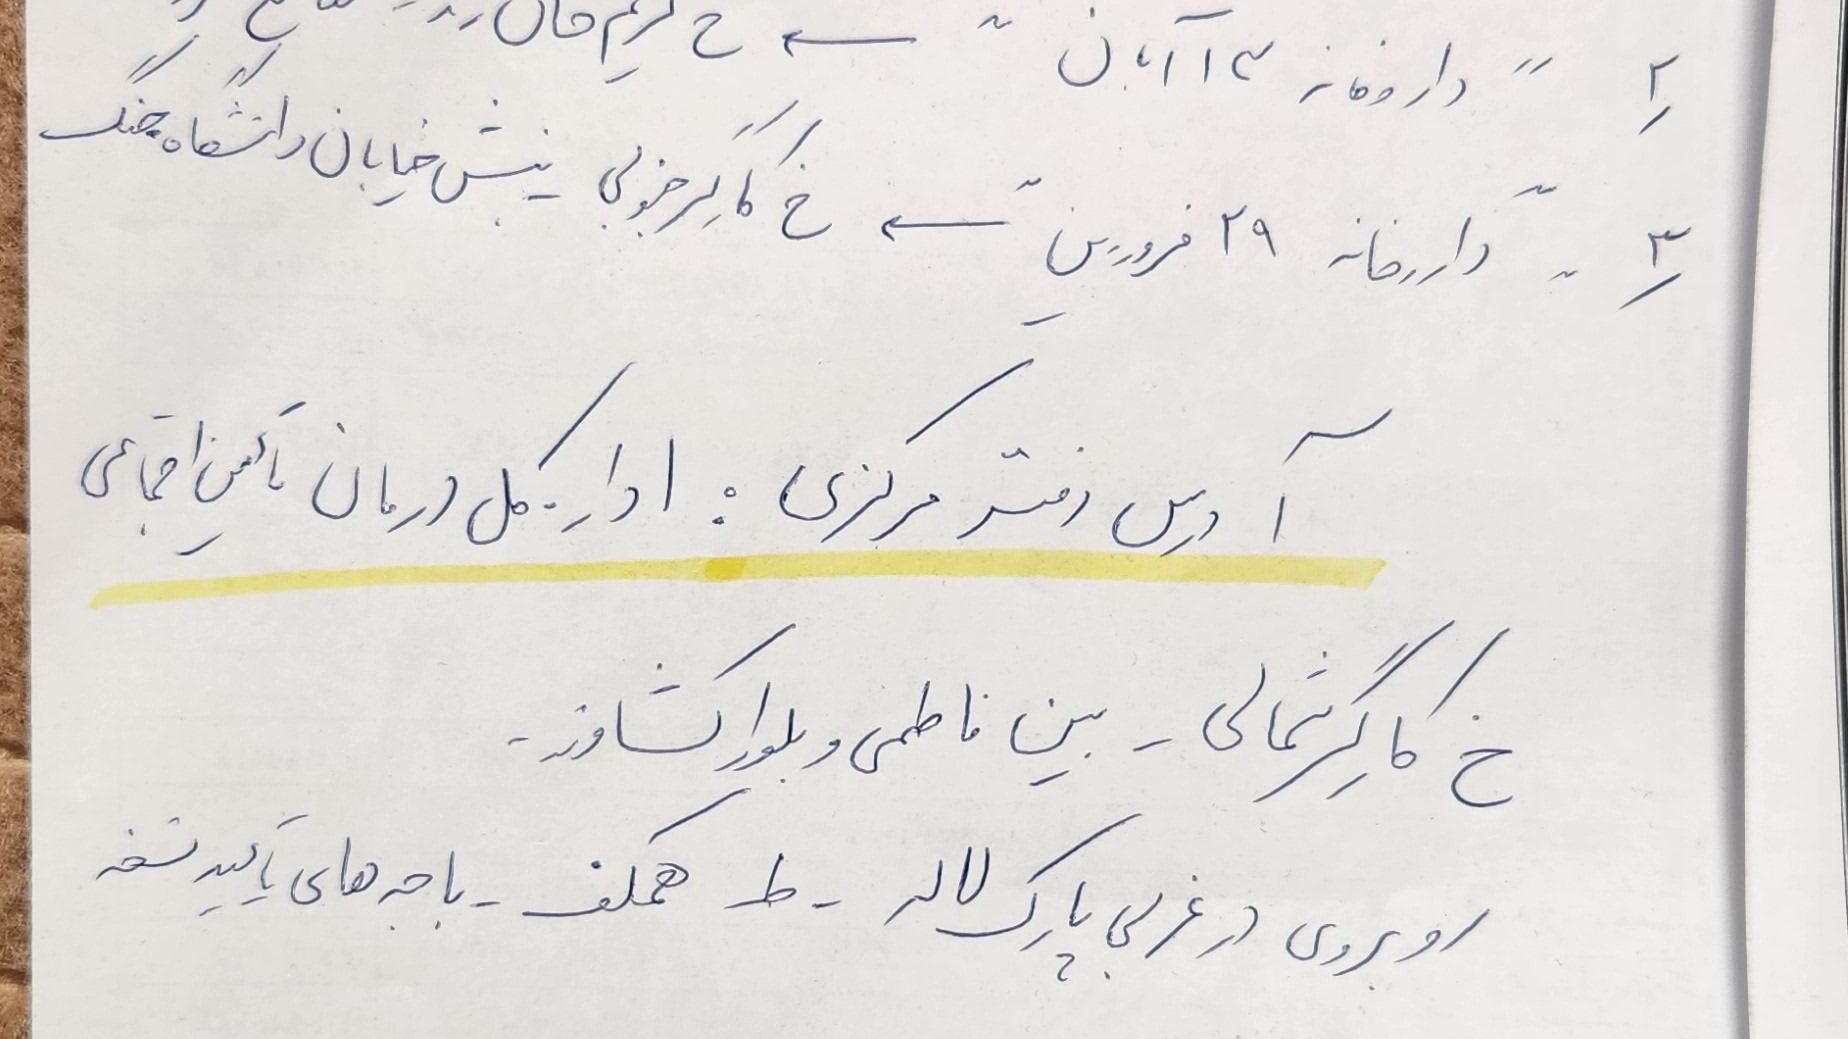 ۲ـ " داروخانه ۱۳ آبان " ← خ کریم خان زند
۳ـ " داروخانه ۲۹ فروردین " ← خ کارگر جنوبی نبش خیابان دانشگاه جنگ
آدرس دفتر مرکزی : اداره کل درمان تأمین اجتماعی
خ کارگر شمالی - بین فاطمی و بلوار کشاورز -
روبروی در غربی پارک لاله - ط همکف - باجه های تأیید نسخه